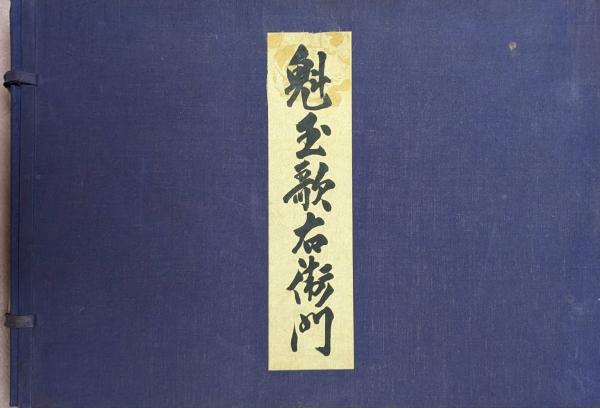 魁玉歌右衛門